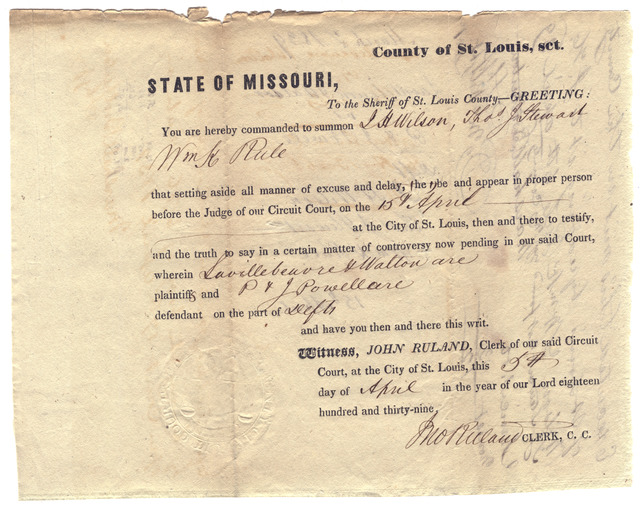 County of St. Louis, sct.
STATE OF MISSOURI,
To the Sheriff of St. Louis County,—GREETING:
You are hereby commanded to summon J H Wilson, Thos J Stewart
Wm K Rule
that setting aside all manner of excuse and delay, the y be and appear in proper person
before the Judge of our Circuit Court, on the 15th April
at the City of St. Louis, then and there to testify,
and the truth to say in a certain matter of controversy now pending in our said Court,
wherein Lavillebeuvre & Walton are
plaintiffs and P & J Powell are
defendant on the part of Defts
and have you then and there this writ.
Witness, JOHN RULAND, Clerk of our said Circuit
Court, at the City of St. Louis, this 5th
day of April in the year of our Lord eighteen
hundred and thirty-nine
Jno Ruland CLERK, C. C.